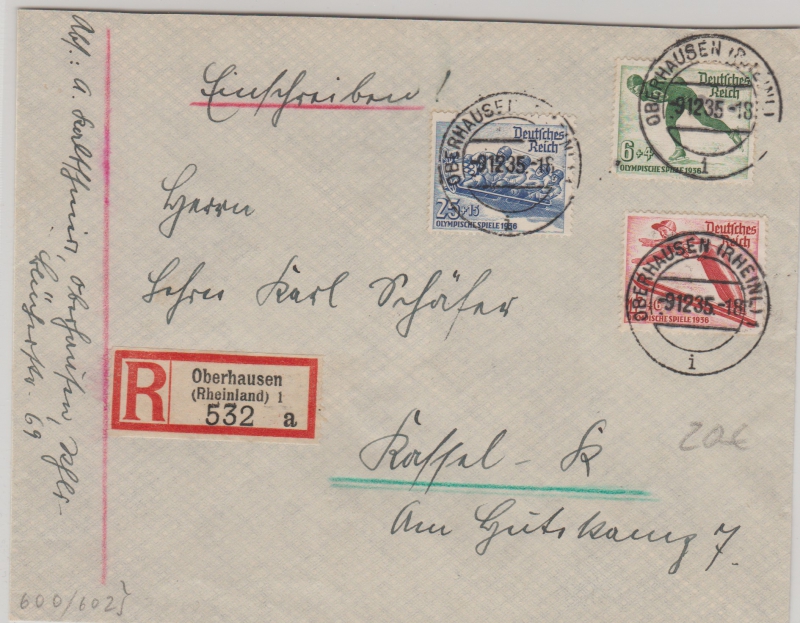 Einschreiben!
Herrn
Lehrer Karl Schäfer
Kassel - K
Am Gutskamp 7
Abs.: A.
Oberhausen,
69
R
Oberhausen
(Rheinland) 1
532 a
Deutsches
Reich
25+15
OLYMPISCHE SPIELE 1936
OBERHAUSEN
-9.12.35.-18
i
Deutsches
Reich
6+4
OLYMPISCHE SPIELE 1936
OBERHAUSEN (RHEINL) 1
-9.12.35.-18
i
Deutsches
Reich
OLYMPISCHE SPIELE 1936
OBERHAUSEN (RHEINL) 1
-9.12.35.-18
i
20€
600/602